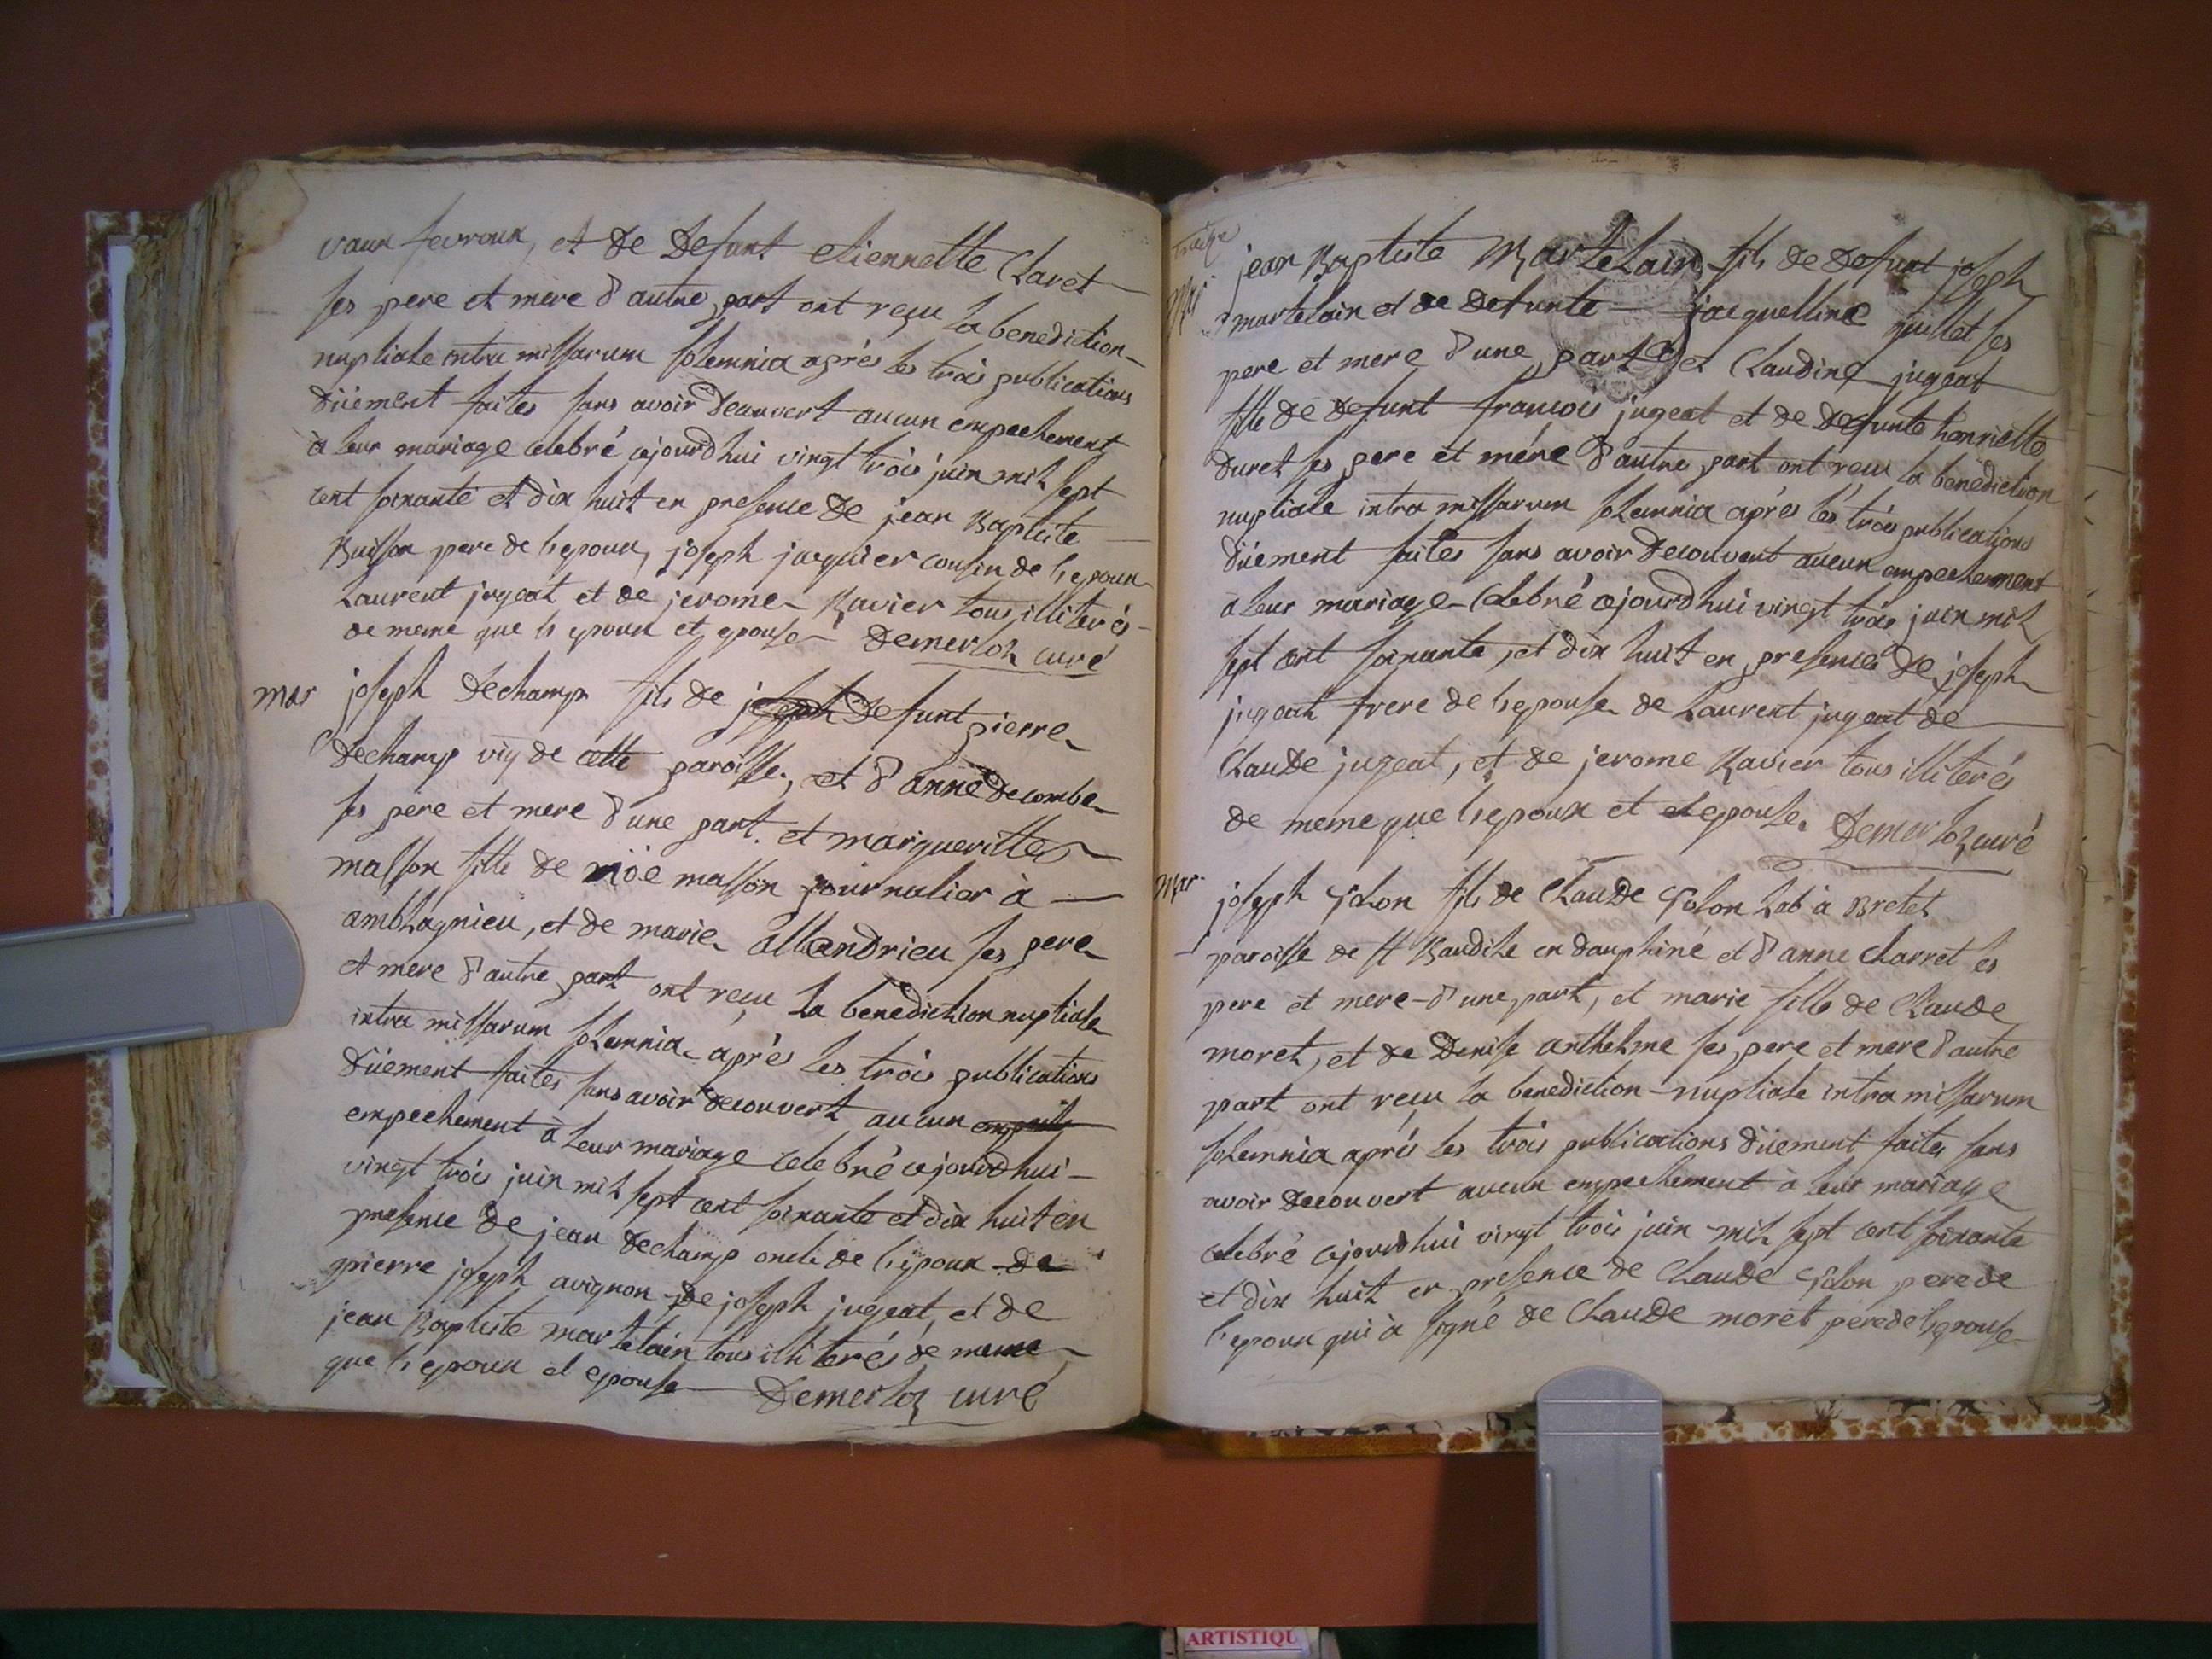 vaux fevroux, et de Defunt etiennette Claret
ses pere et mere d'autre part ont reçu la benediction
nuptiale intra missarum solemnia aprés les trois publications
düement faites sans avoir decouvert aucun empechement
à leur mariage celebré cejourdhui vingt trois juin mil sept
cent soixante et dix huit en presence de jean Baptiste
Buisson pere de l'epoux, joseph jaquier cousin de l'epoux
Laurent jugeat et de jerome Ravier tous illiterés
de meme que l'epoux et epouse Demerloz curé
mar joseph dechamp fils de joseph Defunt pierre
dechamp vig de cette paroisse, et d'anne decombe
ses pere et mere d'une part. et marguerittes
masson fille de nöe masson journalier à
amblagnieu, et de marie allandrieu ses pere
et mere d'autre part ont reçu la benediction nuptiale
intra missarum solemnia aprés les trois publications
düement faites sans avoir decouvert aucun
empechement à leur mariage celebré cejourdhui
vingt trois juin mil sept cent soixante et dix huit en
presence de jean dechamp oncle de l'epoux de
pierre joseph avignon de joseph jugeat, et de
jean Baptiste martelain tous illiterés de meme
que l'epoux et epouse Demerloz curé
treize
mar jean Baptiste Martelain fils de defunt joseph
martelain et de defunte jacquelline quillet ses
pere et mere d'une part et Claudine jugeat
fille de defunt francois jugeat et de defunte henriette
duret ses pere et mére d'autre part ont reçu la benediction
nuptiale intra missarum solemnia aprés lés trois publications
düement faites sans avoir decouvert aucun empechement
a leur mariage celebré cejourdhui vingt trois juin mil
sept cent soixante, et dix huit en presence de joseph
jugeat frere de l'epouse de Laurent jugeat de
Claude jugeat, et de jerome Ravier tous illiterés
de meme que l'epoux et et epouse. Demerloz curé
mar. joseph Solon fils de Claude Solon Lab à Bretet
paroisse de St Baudile en dauphiné et d'anne Charret es
pere et mere d'une part, et marie fille de Claude
moret, et de Denise anthelme ses pere et mere d'autre
part ont reçu la benediction nuptiale intra missarum
solemnia aprés les trois publications düement faites sans
avoir decouvert aucun empechement à leur mariage
celebré cejourdhui vingt trois juin mil sept cent soixante
et dix huit en presence de Claude Solon pere de
l'epoux qui à signé de Claude moret pere de l'epouse
ARTISTIQU